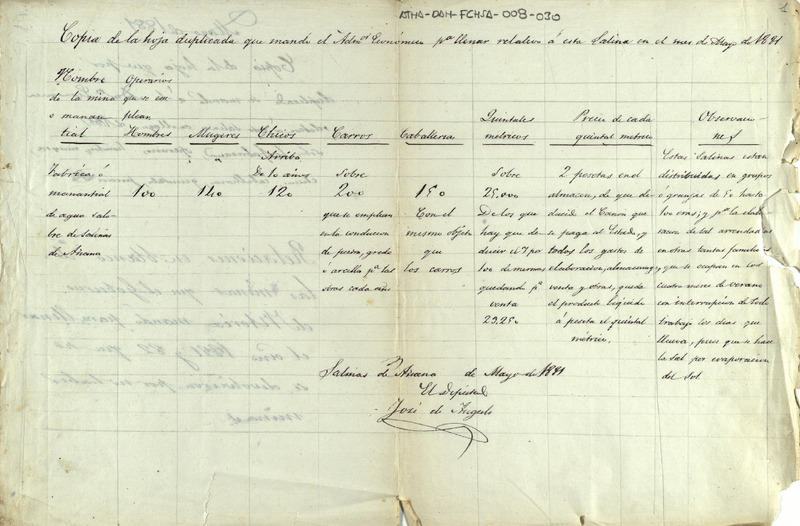 ATHA-DAH-FCHSA-008-030
1
Copia de la hoja duplicada que mandó el Admor Económico pa llenar relativo á esta Salina en el mes de Mayo de 1881
Nombre
de la mina
o manan
tial
Operarios
que se em
plean
Hombres
Mugeres
Chicos
Carros
Caballerias
Quintales
métricos
Precio de cada
quintal métrico
Observacio
nes
Fabrica ó
manantial
de agua sala-
bre de Salinas
de Añana
100
140
Arriba
De 10 años
120
Sobre
200
que se emplean
en la conduccion
de piedra, greda
o arcilla pa las
obras cada año
150
Con el
mismo objeto
que
los carros
Sobre
25.000
De los que
hay que de-
ducir el 7 por
100 de mermas
quedando pa
venta
23.250
2 pesetas en el
almacen, de que de-
ducido el Canon que
se paga al Estado, y
todos los gastos de
elaboracion, almacenage,
venta y obras, queda
el producto líquido
á peseta el quintal
métrico.
Estas Salinas estan
distribuidas en grupos
ó granjas de 50 hasta
100 eras; y pa la elabo-
racion de sal arrendadas
en otras tantas familias,
que se ocupan en los
cuatro meses de verano
con interrupcion de todo
trabajo los dias que
llueva, pues que se hace
la sal por evaporacion
del Sol.
Salinas de Añana de Mayo de 1881
El Diputado
José de Angulo